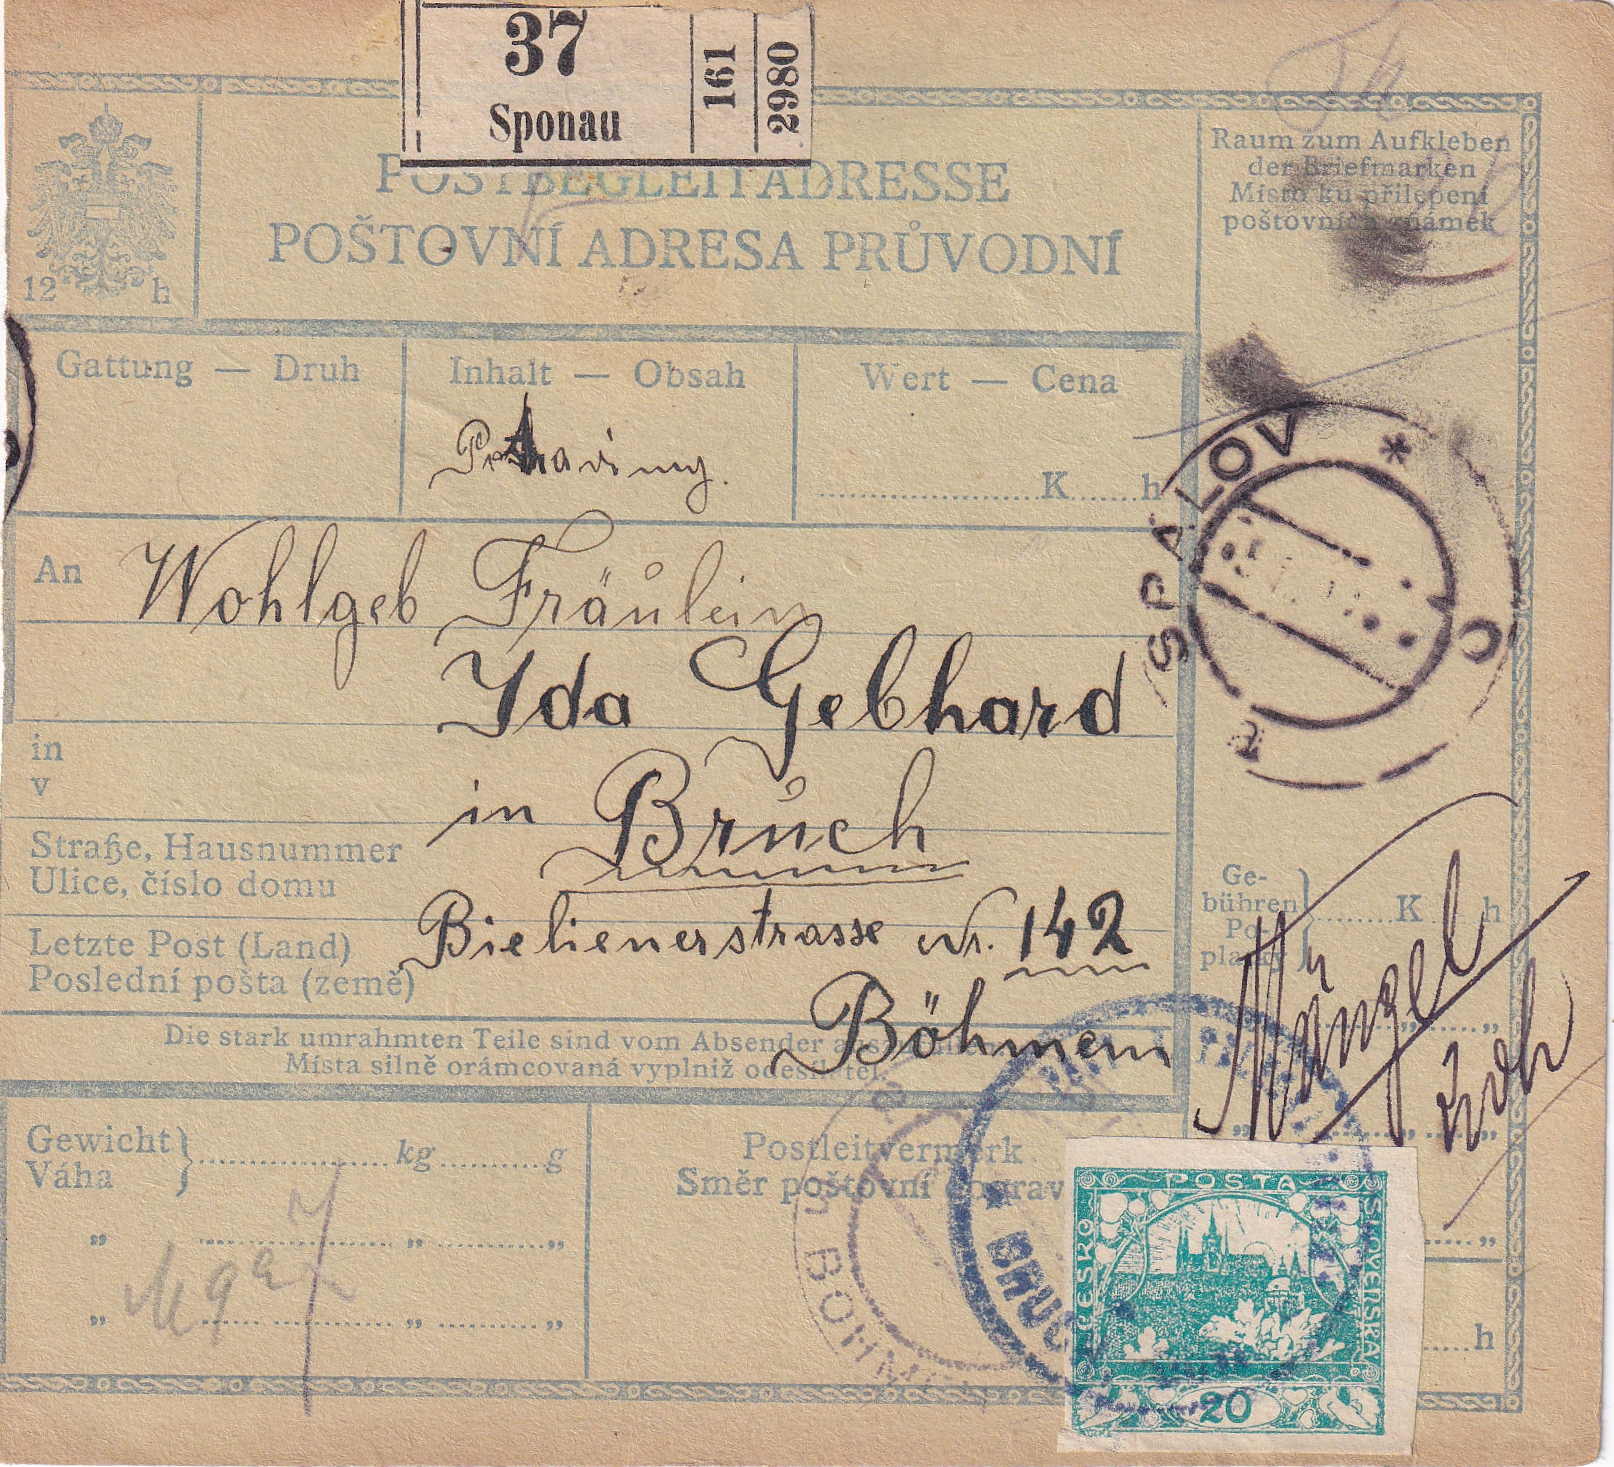 37
Sponau
161
2980
POSTBEGLEITADRESSE
POŠTOVNÍ ADRESA PRŮVODNÍ
12 h
Raum zum Aufkleben
der Briefmarken
Místo ku přilepení
poštovních známek
Gattung — Druh
Inhalt — Obsah
Wert — Cena
K h
SPÁLOV
An Wohlgeb Fräulein
Ida Gebhard
in
v
in Bruch
Straße, Hausnummer
Ulice, číslo domu
Bielienerstrasse Nr. 142
Letzte Post (Land)
Poslední pošta (země)
Böhmen
Ge-
bühren
Po-
platky
K h
Mängel
Die stark umrahmten Teile sind vom Absender
Místa silně orámcovaná vyplniž odesílatel
Gewicht
Váha
kg g
Postleitvermerk
Směr poštovní doprav
h
BRUCH
POSTA
ČESKO
SLOVENSKÁ
20